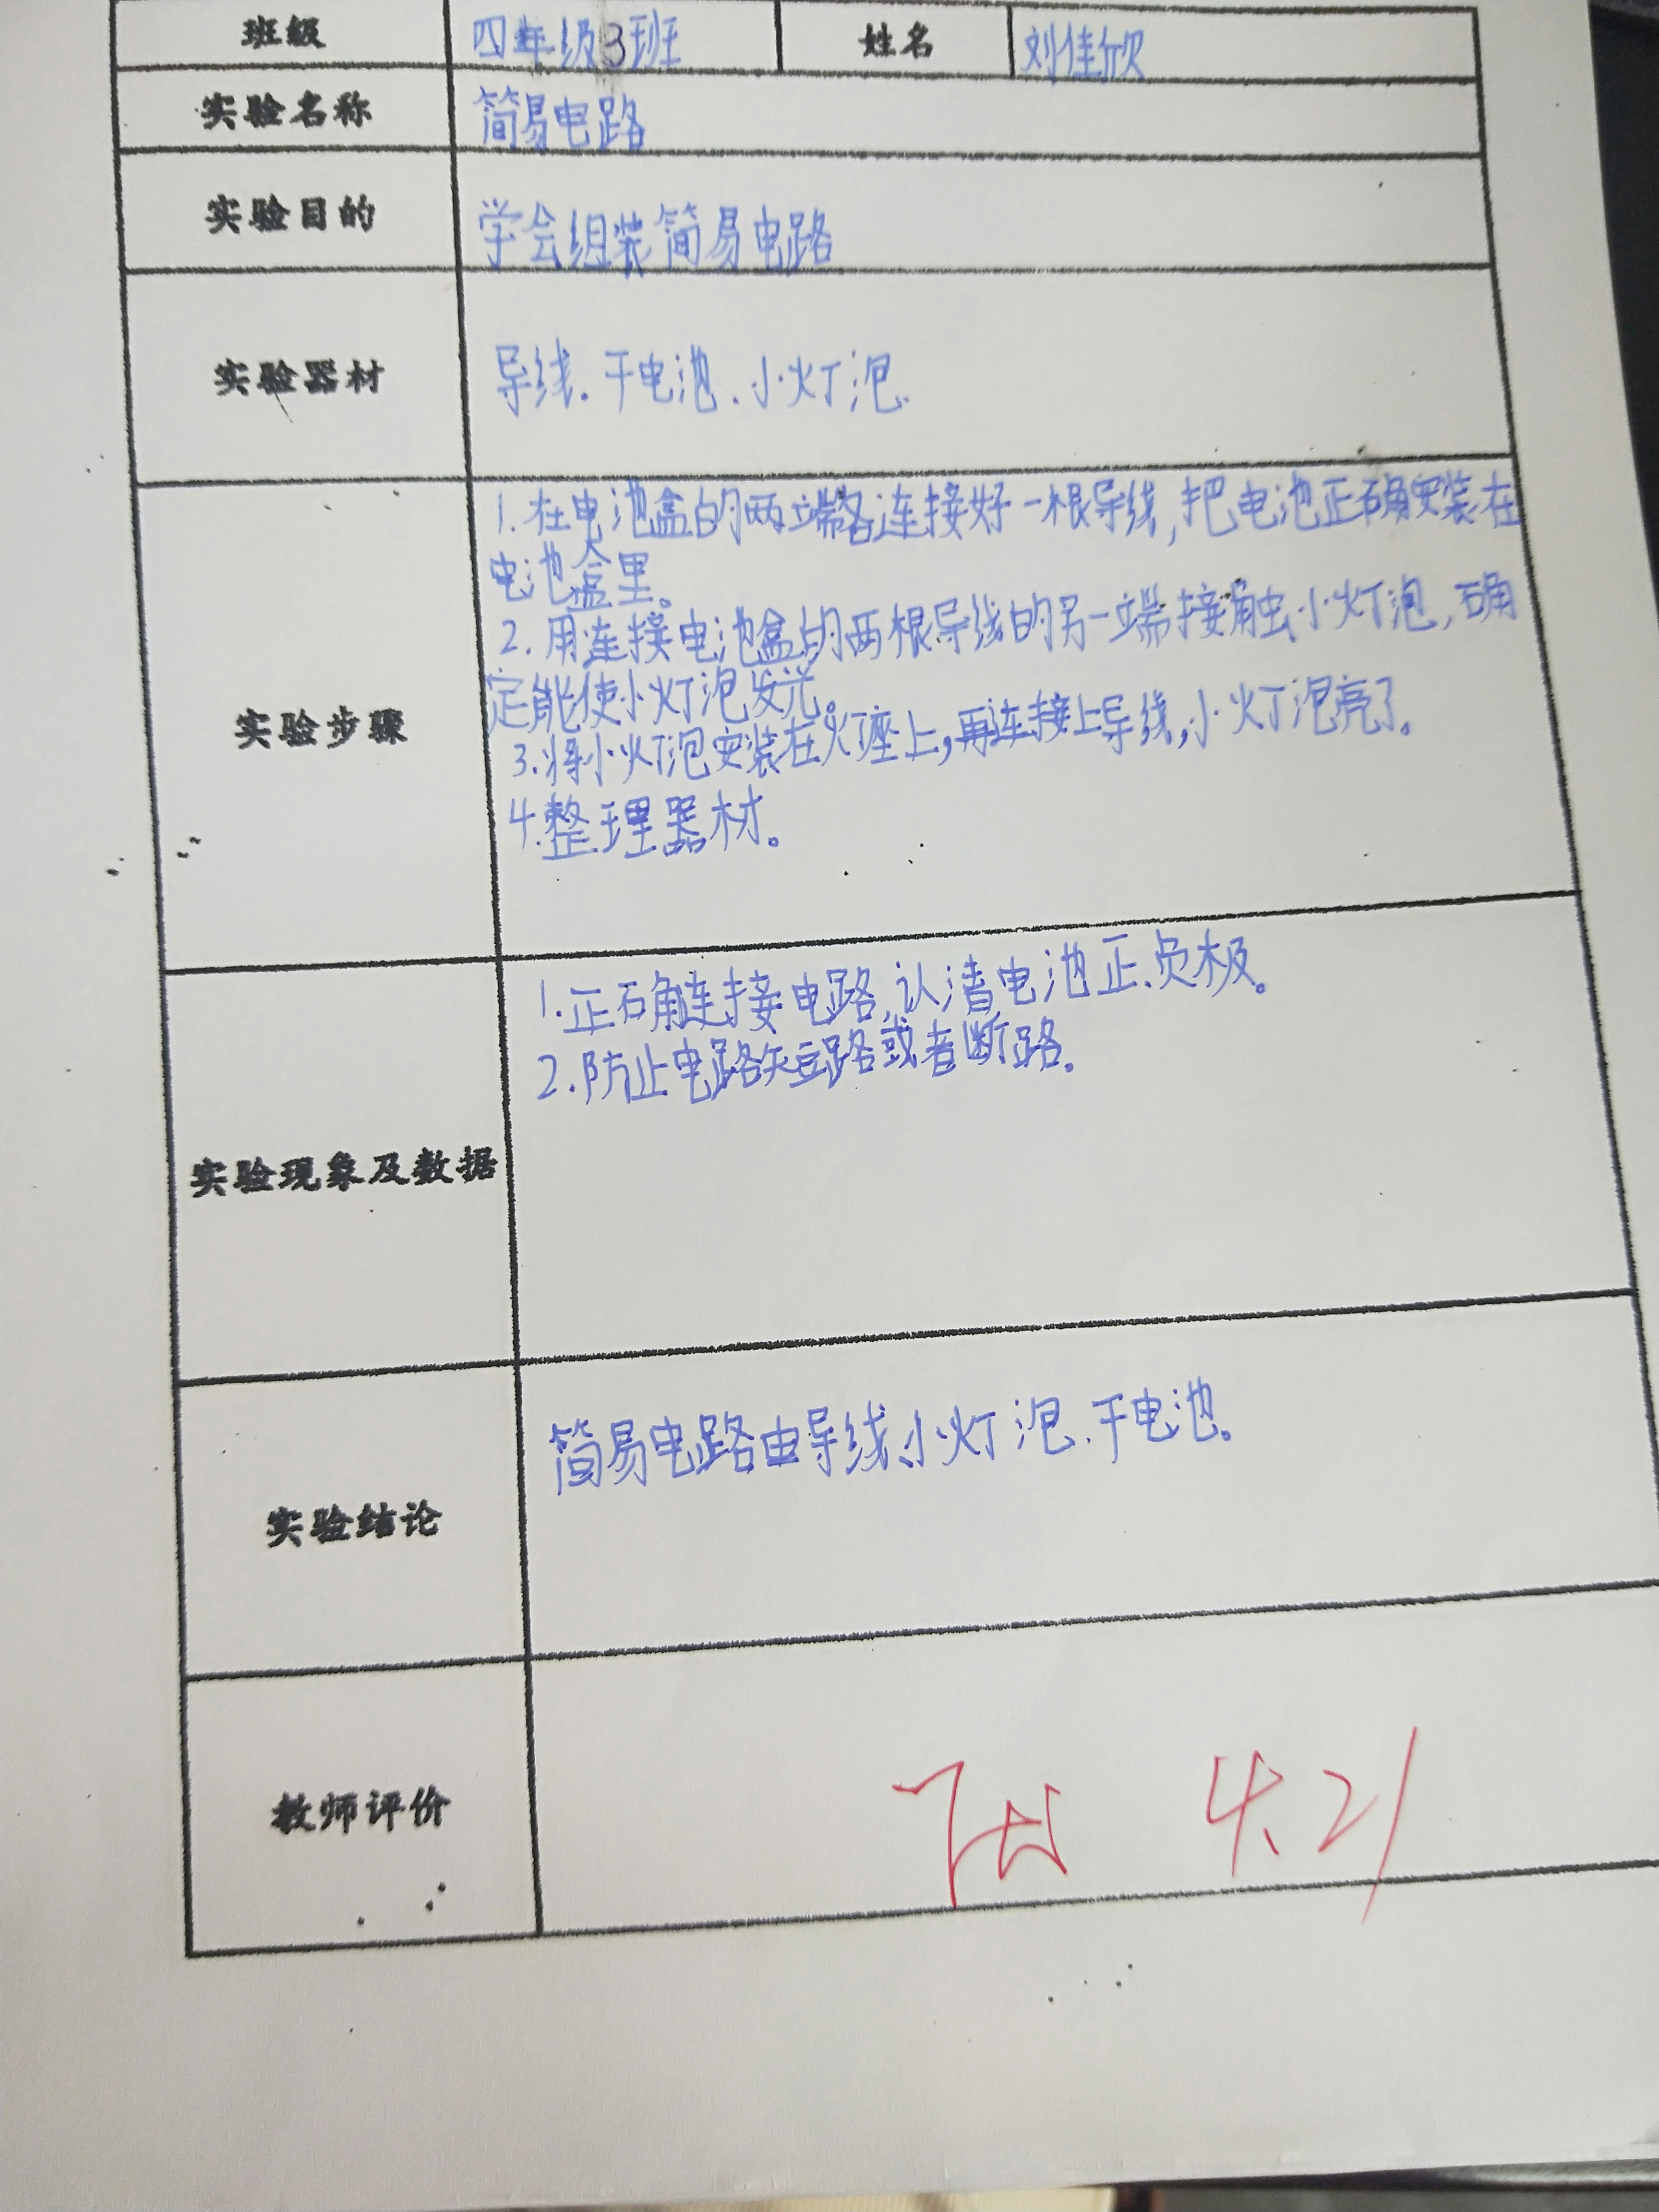 班级 四年级3班 姓名 刘佳欣
实验名称 简易电路
实验目的 学会组装简易电路
实验器材 导线.干电池.小灯泡.
实验步骤
1.在电池盒的两端各连接好一根导线,把电池正确安装在
电池盒里。
2.用连接电池盒的两根导线的另一端接触小灯泡,确
定能使小灯泡发光。
3.将小灯泡安装在灯座上,再连接上导线,小灯泡亮了。
4.整理器材。
实验现象及数据
1.正确连接电路,认清电池正、负极。
2.防止电路短路或者断路。
实验结论
简易电路由导线、小灯泡、干电池。
教师评价
4.21